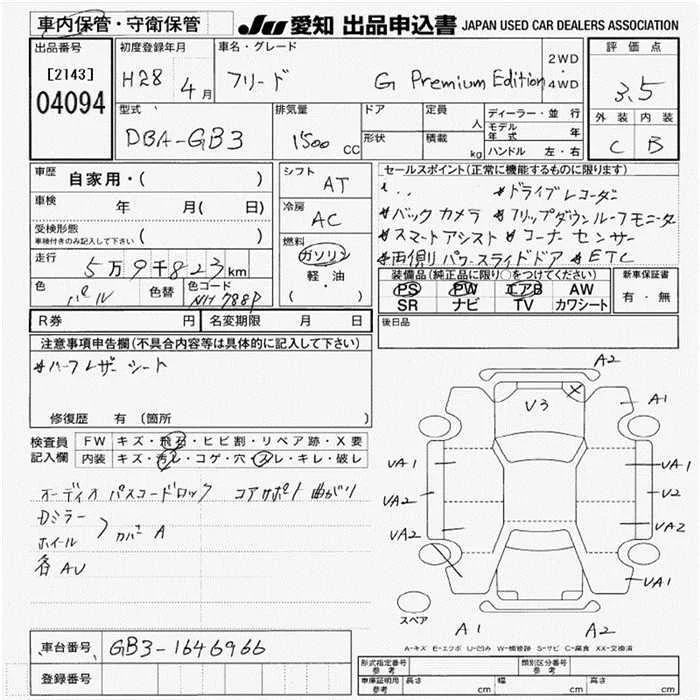 車内保管・守衛保管
JU 愛知 出品申込書 JAPAN USED CAR DEALERS ASSOCIATION
出品番号 初度登録年月 車名・グレード 評価点
[2143]
04094
H28 4月 フリード G Premium Edition 2WD・4WD 3.5
型式 排気量 ドア 定員 人 ディーラー・並行 外装 内装
DBA-GB3 1500 CC 形状 積載 kg モデル年式 年 C B
ハンドル 左・右
車歴 自家用・( )
シフト AT
セールスポイント(正常に機能するものに限ります)
*ドライブレコーダー
*バックカメラ *フリップダウンルーフモニター
*スマートアシスト *コーナーセンサー
*両側パワースライドドア *ETC
車検 年 月( 日)
冷房 AC
受検形態
車検付きのみ記入して下さい ( )
燃料
ガソリン
軽・油
( )
走行 5万9千823km
色 パール 色替 色コード NH788P
装備品(純正品に限り○をつけてください)
PS PW エアB AW
SR ナビ TV カワシート
新車保証書
有・無
R券 円 名変期限 月 日
後日品
注意事項申告欄(不具合内容等は具体的に記入して下さい)
*ハーフレザーシート
修復歴 有 (箇所 )
検査員記入欄
FW キズ・飛石・ヒビ割・リペア跡・X要
内装 キズ・汚レ・コゲ・穴・スレ・キレ・破レ
オーディオ パスコードロック コアサポート曲がり
Dミラー
ホイール
カバーA
各AU
A2
V3
A1
UA1
UA1
UA2
U2
UA2
UA2
UA1
スペア
A1 A2
A-キズ E-エクボ U-凹み W-補修跡 S-サビ C-腐食 XX-交換済
車台番号 GB3-1646966
登録番号
形式指定番号 参考 類別区分番号 参考
車庫証明用 参考 長さ cm 幅 cm 高さ cm